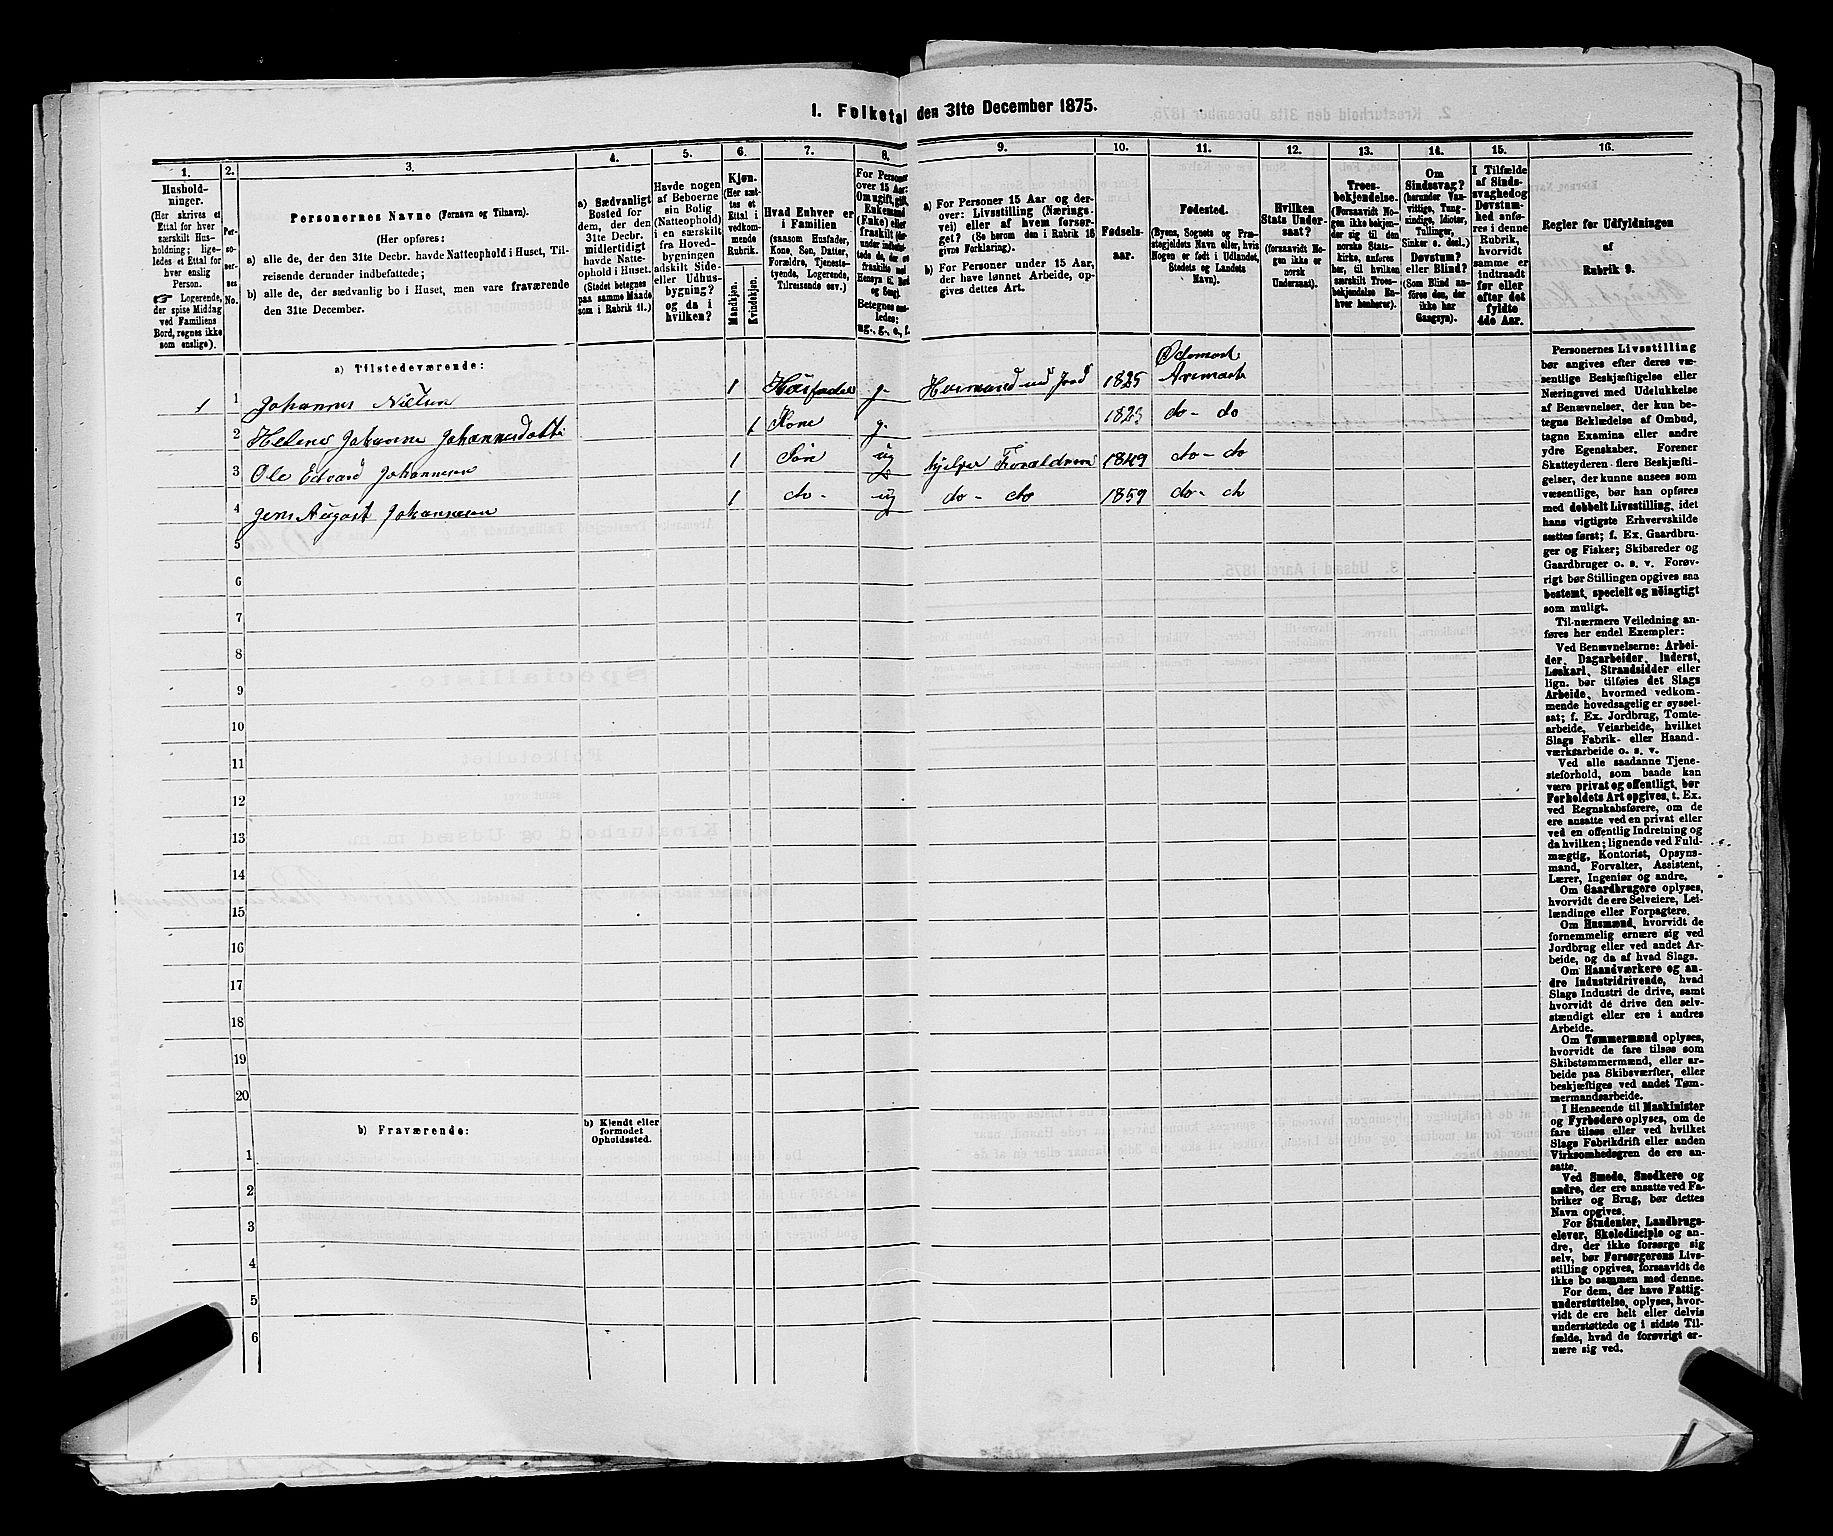 1. Folketal den 31te December 1875.
1.
Husholdninger.
(Her skrives et
Ettal for hver
særskilt Husholdning;
ligeledes et Ettal for
hver enslig
Person.
☞ Logerende,
der spise Middag
ved Familiens
Bord, regnes ikke
som enslige).
2.
Personernes
No.
3.
Personernes Navne (Fornavn og Tilnavn).
(Her opføres:
a) alle de, der den 31te Decbr. havde Natteophold i Huset, Tilreisende derunder indbefattede;
b) alle de, der sædvanlig bo i Huset, men vare fraværende
den 31te December.
4.
a) Sædvanligt
Bosted for
dem, der den
31te Decbr.
midlertidigt
havde Natteophold
i Huset.
(Stedet betegnes
paa samme Maade
som i Rubrik 11.)
5.
Havde nogen
af Beboerne
sin Bolig
(Natteophold)
i en særskilt
fra Hovedbygningen
adskilt Side-
eller Udhusbygning?
og da i
hvilken?
6.
Kjøn.
(Her sættes et
Ettal i
vedkommende
Rubrik.
Mandkjøn.
Kvindekjøn.
7.
Hvad Enhver er
i Familien
(saasom Husfader,
Kone, Søn, Datter,
Forældre, Tjenestetyende,
Logerende,
Tilreisende osv.)
8.
For Personer
over 15 Aar:
Om ugift, gift,
Enkemand
(Enke) eller
fraskilt
Betegnes saaledes:
ug., g., e., f.
9.
a) For Personer 15 Aar og derover: Livsstilling (Næringsvei) eller af hvem forsørget? (Se herom den i Rubrik 16
givne Forklaring).
b) For Personer under 15 Aar,
der have lønnet Arbeide, opgives dettes Art.
10.
Fødselsaar.
11.
Fødested.
(Byens, Sognets og Præstegjeldets Navn eller, hvis
Nogen er født i Udlandet,
Stedets og Landets
Navn).
12.
Hvilken
Stats Undersaat?
(forsaavidt Nogen ikke er
norsk
Undersaat).
13.
Troesbekjendelse.
(Forsaavidt Nogen
ikke bekjender
sig til den
norske Statskirke,
anføres
her, til hvilken
særskilt Troesbekjendelse
Enhver
henhører).
14.
Om
Sindssvag?
(herunder Vanvittige,
Tungsindige,
Idioter,
Tullinger,
Sinker o. desl.)
Døvstum?
eller Blind?
(Som Blind anføres
den, der
ikke har
Gangsyn).
15.
I Tilfælde
af Sindssvaghed
og
Døvstumhed
anføres
i denne
Rubrik,
hvorvidt
samme er
indtraadt
før eller
efter det
fyldte
4de Aar.
16.
Regler for Udfyldningen
af
Rubrik 9.
a) Tilstedeværende:
1 1 Johannes Nielsen 1 Husfader g. Husmand med Jord 1825 Ødemark Aremark
2 Helene Johanne Johannesdatter 1 Kone g. 1823 do - do
3 Ole Edvard Johannesen 1 Søn ug hjelper Forældrene 1849 do - do
4 Jens August Johannesen 1 do - ug do - do 1859 do - do
5
6
7
8
9
10
11
12
13
14
15
16
17
18
19
20
b) Fraværende:
b) Kjendt eller
formodet
Opholdssted.
1
2
3
4
5
6
Personernes Livsstilling
bør angives efter deres væsentlige Beskjæftigelse eller
Næringsvei med Udelukkelse
af Benævnelser, der kun betegne Beklædelse af Ombud,
tagne Examina eller andre
ydre Egenskaber. Forener
Skatteyderen flere Beskjæftigelser, der kunne ansees som
væsentlige, bør han opføres
med dobbelt Livsstilling, idet
hans vigtigste Erhvervskilde
sættes først; f. Ex. Gaardbruger og Fisker; Skibsreder og
Gaardbruger o. s. v. Forøvrigt bør Stillingen opgives saa
bestemt, specielt og nøiagtigt
som muligt.
Til nærmere Veiledning anføres her endel Exempler:
Ved Benævnelserne: Arbeider, Dagarbeider, Inderst,
Løskarl, Strandsidder eller
lign. bør tilføies det Slags
Arbeide, hvormed vedkommende hovedsagelig er sysselsat; f. Ex. Jordbrug, Tomtearbeide, Veiarbeide, hvilket
Slags Fabrik- eller Haandværksarbeide o. s. v.
Ved alle saadanne Tjenesteforhold, som baade kan
være privat og offentligt, bør
Forholdets Art opgives, t. Ex.
ved Regnskabsførere, om de
ere ansatte ved en privat eller
ved en offentlig Indretning og
da hvilken; lignende ved Fuldmægtig, Kontorist, Opsynsmand, Forvalter, Assistent,
Lærer, Ingeniør og andre.
Om Gaardbrugere oplyses,
hvorvidt de ere Selveiere, Leilændinge eller Forpagtere.
Om Husmænd, hvorvidt de
fornemmelig ernære sig ved
Jordbrug eller ved andet Arbeide, og da af hvad Slags.
Om Haandværkere og andre Industridrivende, hvad
Slags Industri de drive, samt
hvorvidt de drive den selvstændigt eller ere i andres
Arbeide.
Om Tømmermænd oplyses,
hvorvidt de fare tilsøs som
Skibstømmermænd, eller arbeide paa Skibsværfter, eller
beskjæftiges ved andet Tømmermandsarbeide.
I Henseende til Maskinister
og Fyrbødere oplyses, om de
fare tilsøs eller ved hvilket
Slags Fabrikdrift eller anden
Virksomhedsgren de ere ansatte.
Ved Smede, Snedkere og
andre, der ere ansatte ved Fabriker og Brug, bør dettes
Navn opgives.
For Studenter, Landbrugselever, Skoledisciple og andre, der ikke forsørge sig
selv, bør Forsørgerens Livsstilling opgives, forsaavidt de
ikke bo sammen med denne.
For dem, der have Fattigunderstøttelse, oplyses, hvorvidt de ere helt eller delvis
understøttede og i sidste Tilfælde, hvad de forøvrigt ernære sig ved.